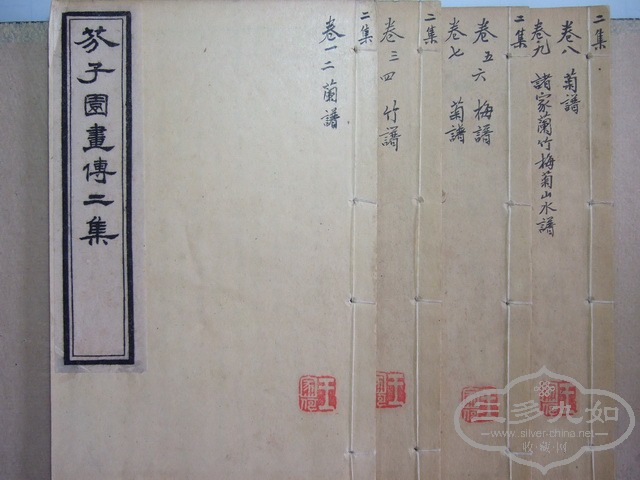 芥子園畫傳二集
二集
卷一二 蘭譜
二集
卷三四 竹譜
二集
卷五六 梅譜
卷七 菊譜
二集
卷八 菊譜
卷九 諸家蘭竹梅菊山水譜
王
王
王
www.silver-china.net